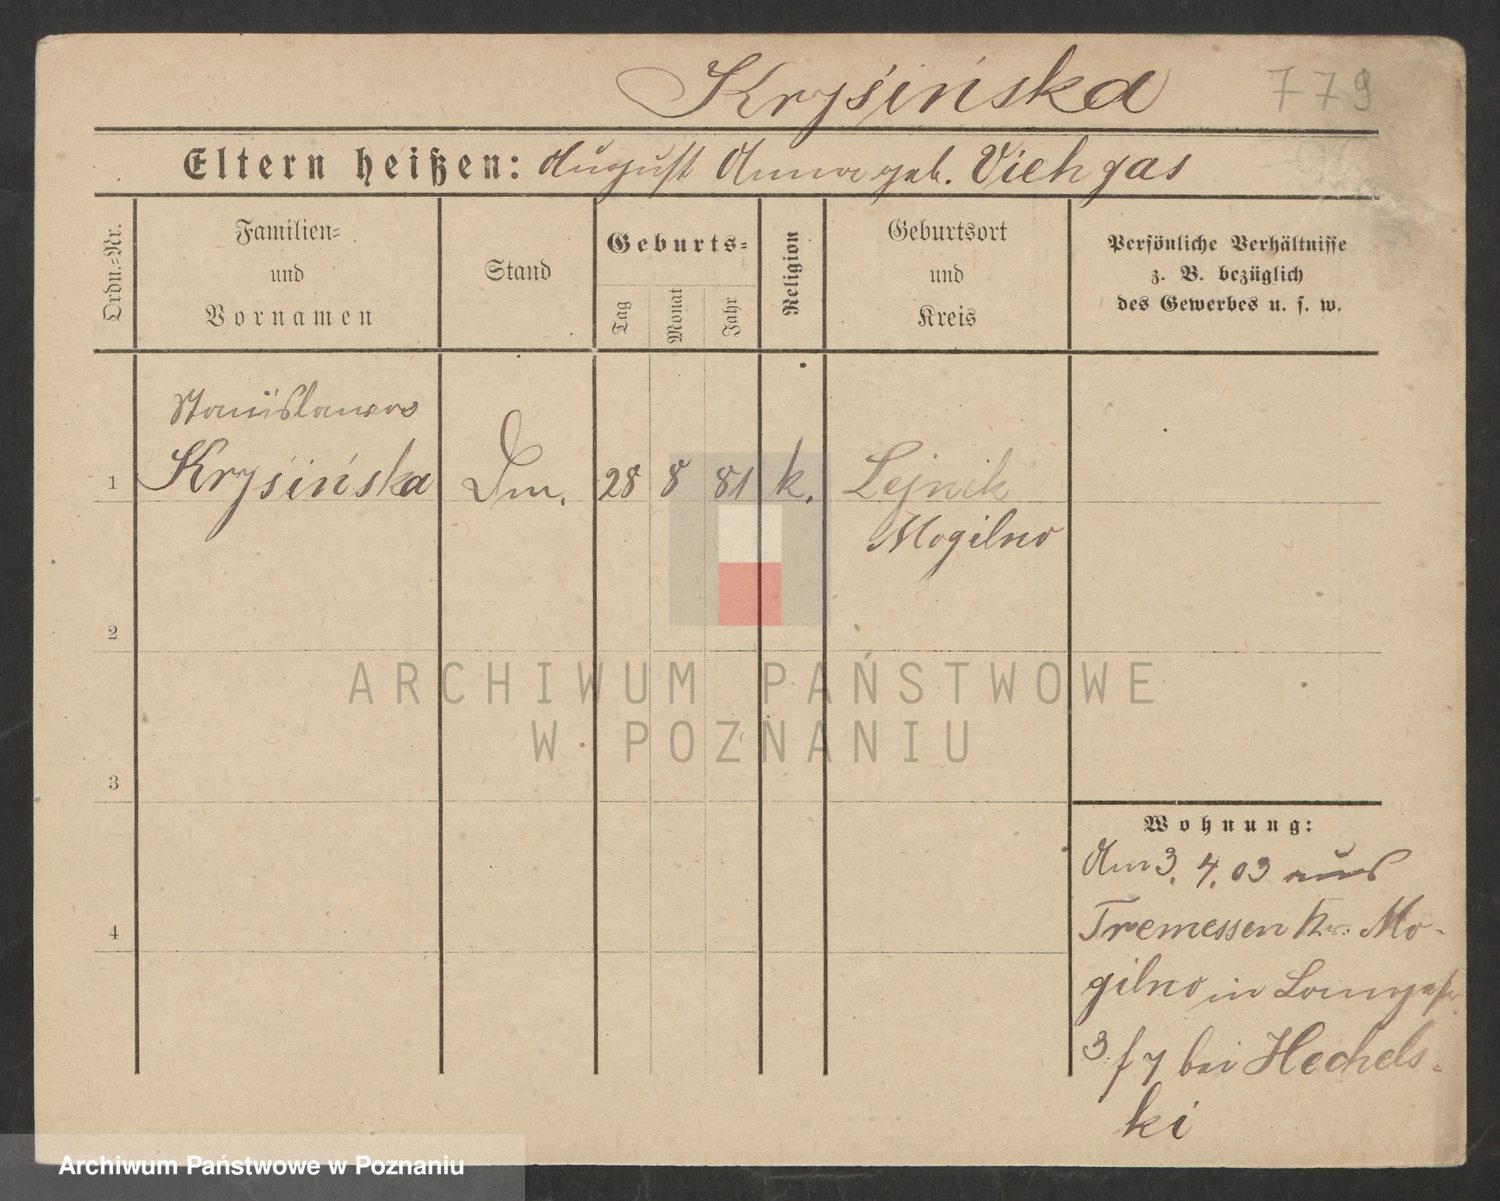 Kryśińska 779
Eltern heißen: August Anna geb. Viehgas
Ordn.=Nr.
Familien=
und
Vornamen
Stand
Geburts=
Tag
Monat
Jahr
Religion
Geburtsort
und
Kreis
Persönliche Verhältnisse
z. B. bezüglich
des Gewerbes u. s. w.
Stanislawa
1 Kryśińska Dm. 28 8 81 k. Lejnik
Mogilno
2
3
4
Wohnung:
Am 3. 4. 03 aus
Tremessen Kr. Mo-
gilno in
3 / 7 bei Hechels-
ki
ARCHIWUM PAŃSTWOWE
W POZNANIU
Archiwum Państwowe w Poznaniu